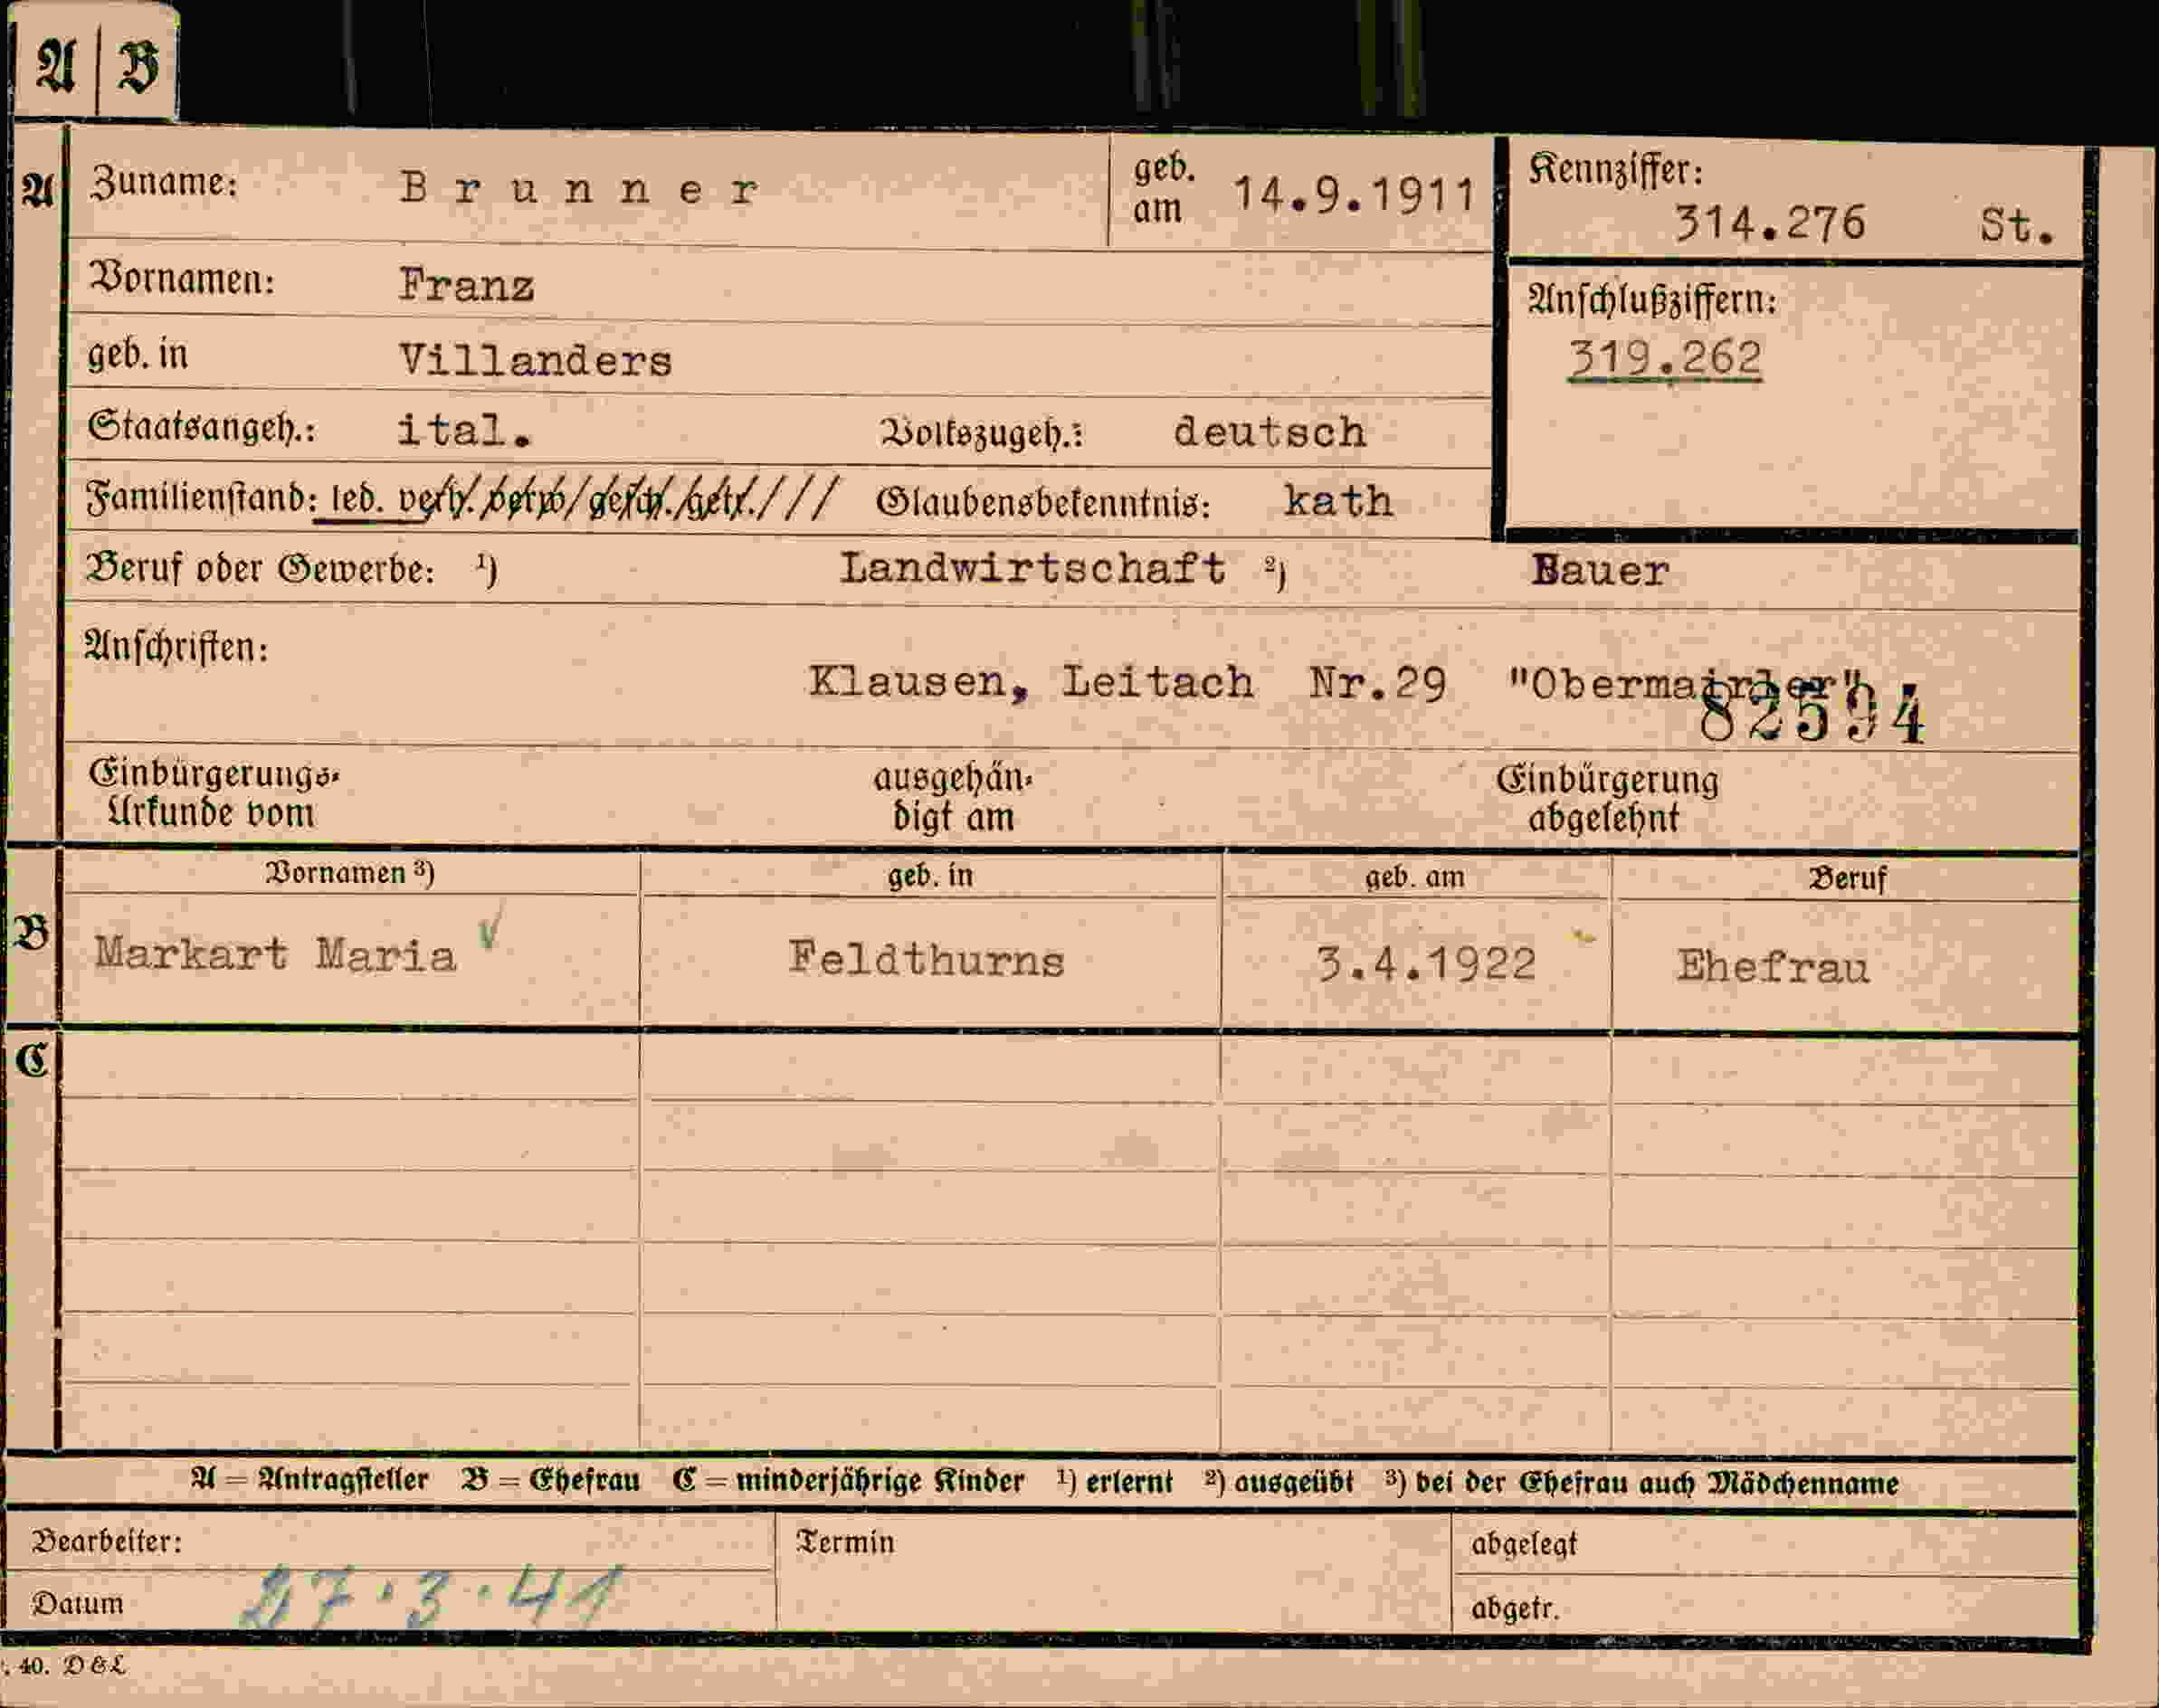 A | B
A Zuname: Brunner geb. am 14.9.1911 Kennziffer: 314.276 St.
Vornamen: Franz Anschlußziffern:
geb. in Villanders 319.262
Staatsangeh.: ital. Volkszugeh.: deutsch
Familienstand: led. verh. verw. gesch. getr. Glaubensbekenntnis: kath
Beruf oder Gewerbe: ¹) Landwirtschaft ²) Bauer
Anschriften:
Klausen, Leitach Nr.29
82594
Einbürgerungs- Urkunde vom ausgehän- digt am Einbürgerung abgelehnt
Vornamen ³) geb. in geb. am Beruf
B Markart Maria Feldthurns 3.4.1922 Ehefrau
C
A = Antragsteller B = Ehefrau C = minderjährige Kinder ¹) erlernt ²) ausgeübt ³) bei der Ehefrau auch Mädchenname
Bearbeiter: Termin abgelegt
Datum 27.3.41 abgetr.
. 40. D & L